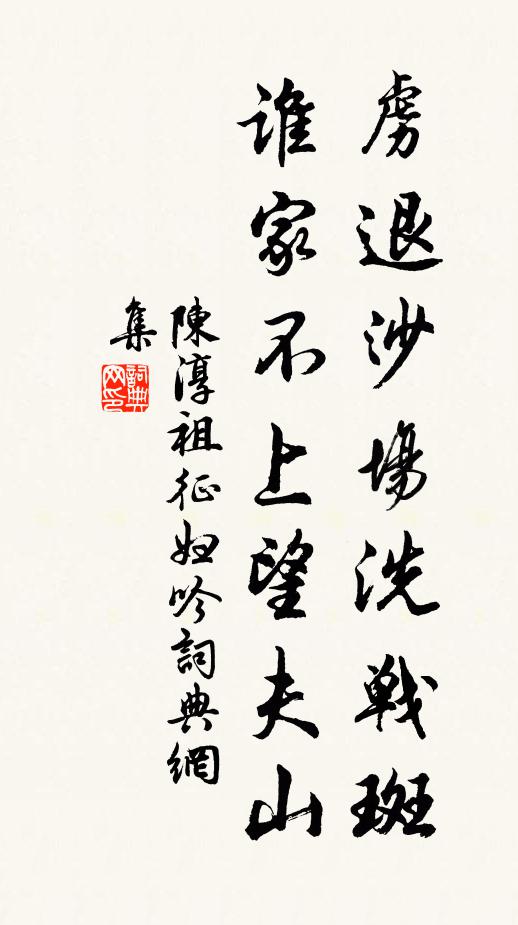 虜退沙場洗戰斑
誰家不上望夫山
陳淳祖征婦吟詞典網
集
詞典
网印